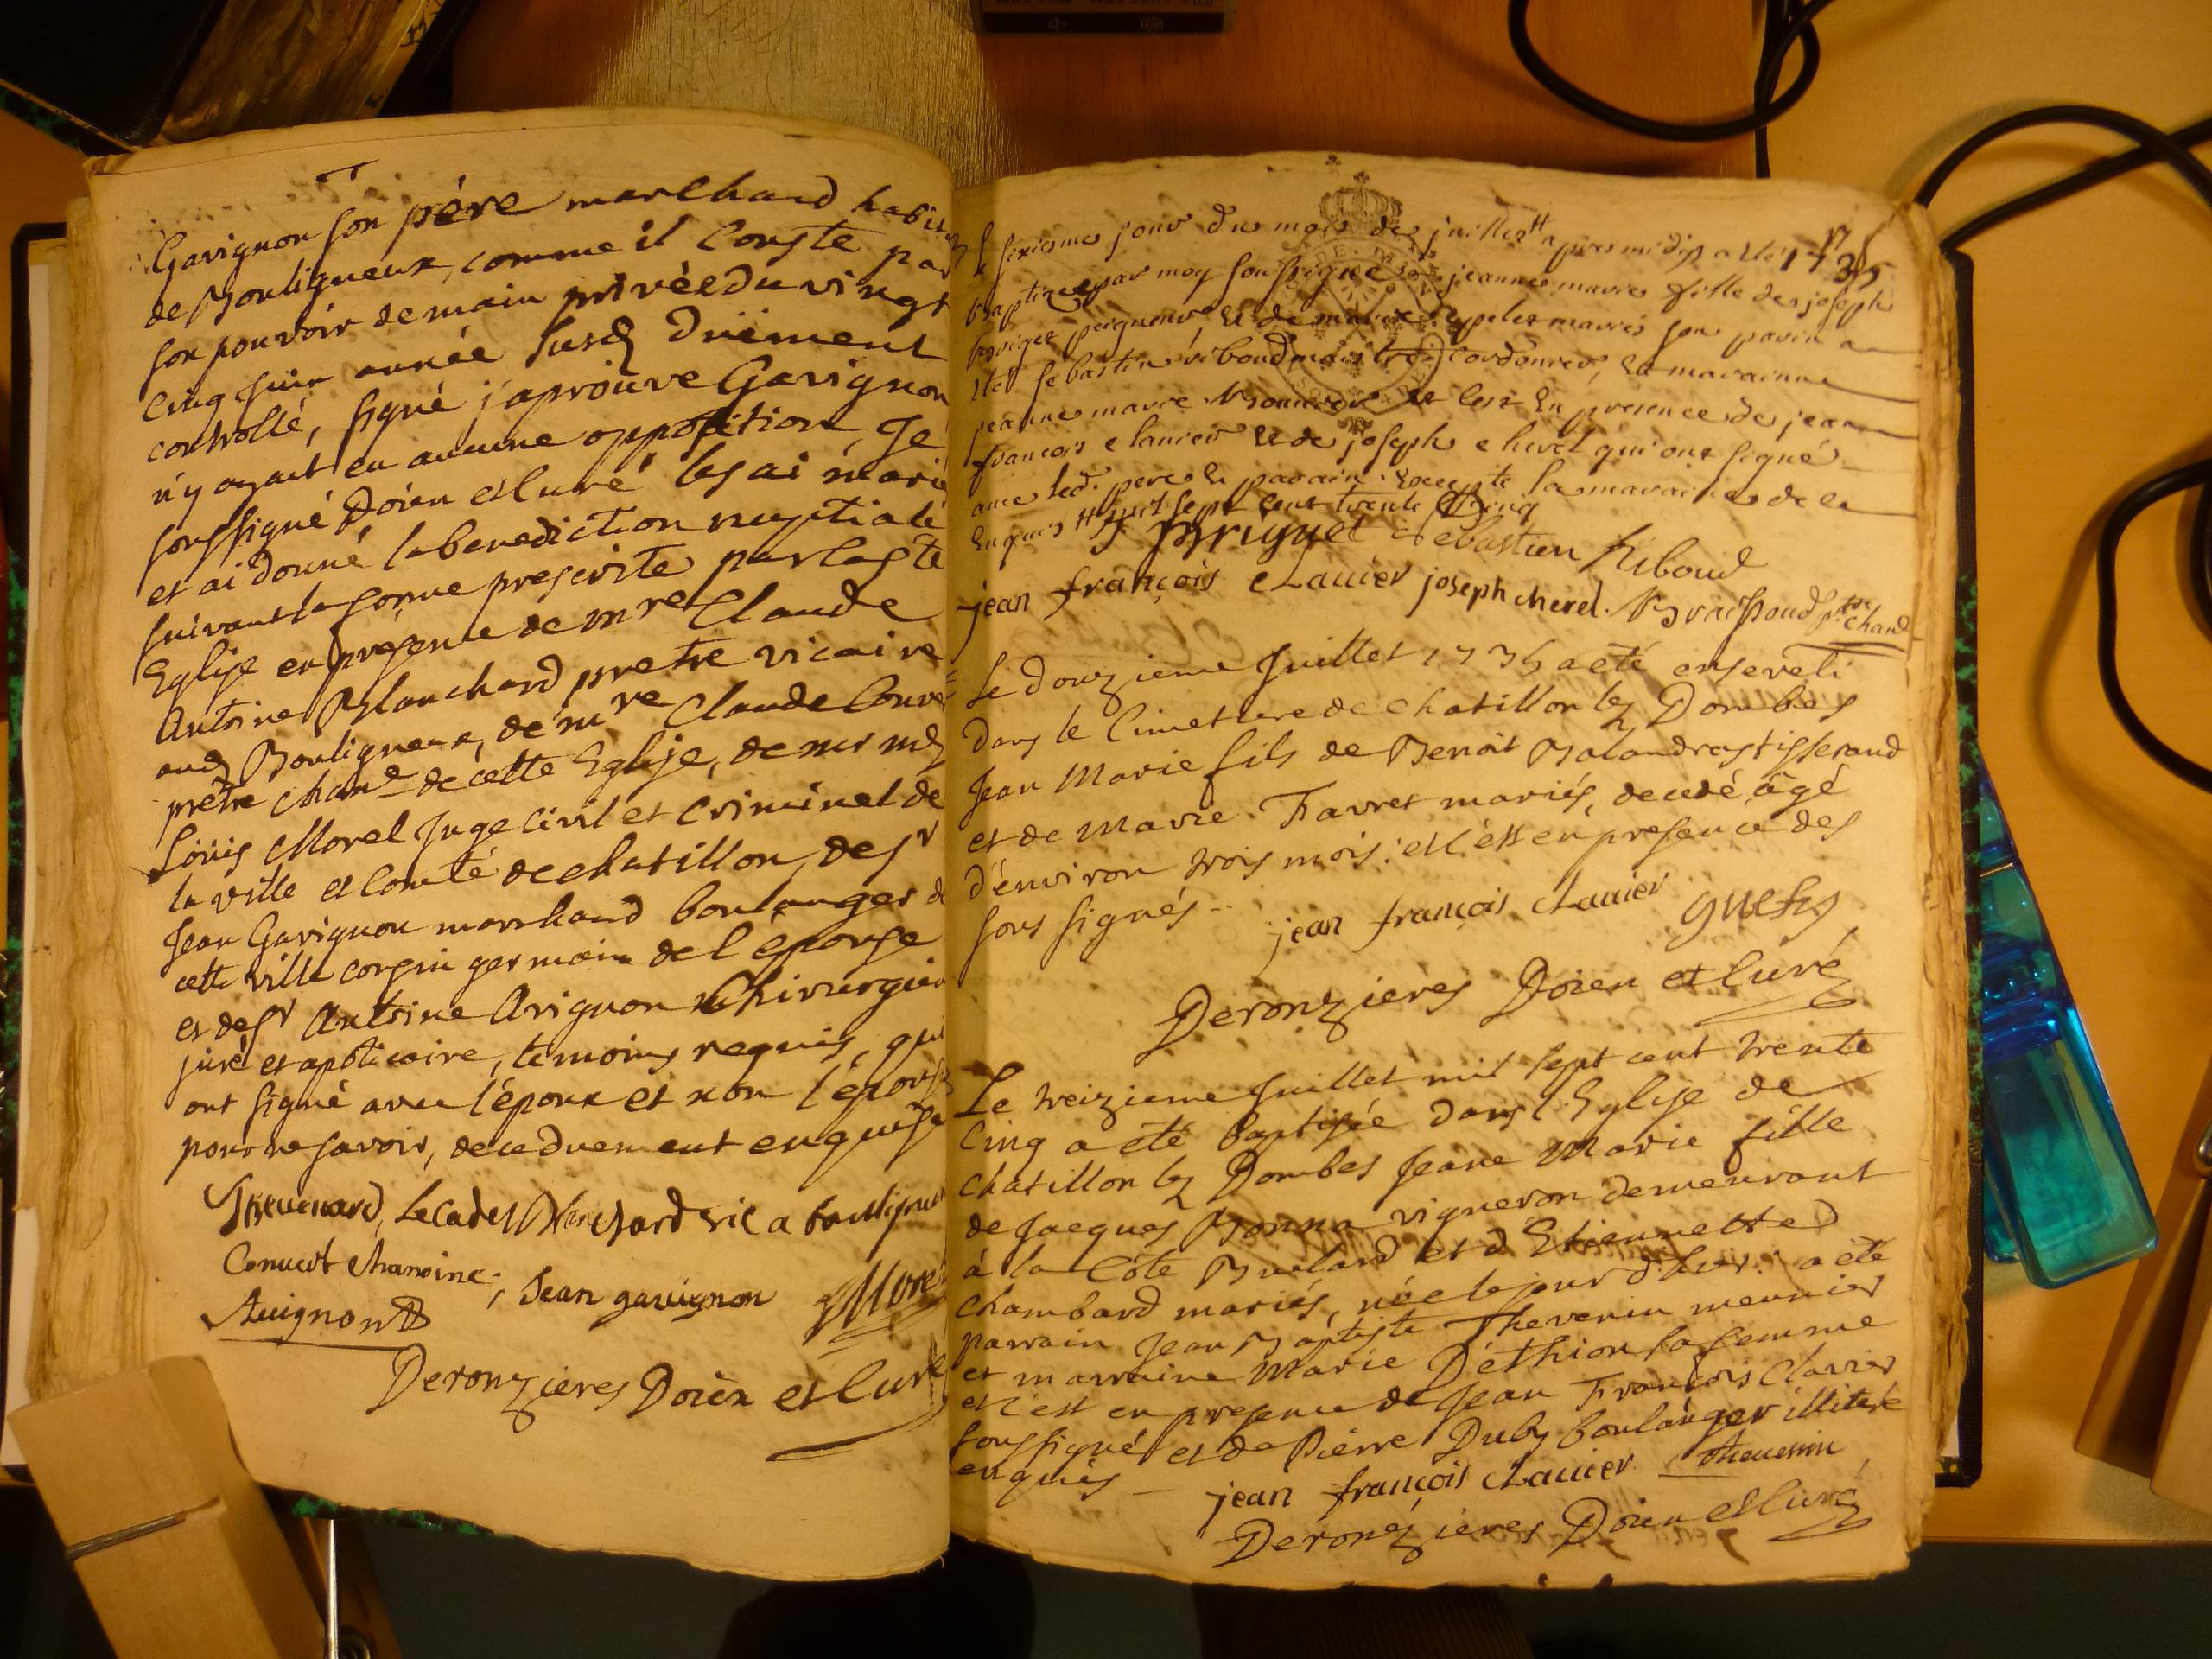 Gavignon son père marchand habit
de Bouligneux, comme il Conste par
son pouvoir de main privée du vingt
Cinq juin année susd duement
controllé, signé j'aprouve Gavignon
n'y ayant eu aucune opposition, Je
soussigné Doien et Curé les ai marié
et ai donné la benediction nuptiale
suivant la forme prescrite par la Ste
Eglise en presence de mre Claude
Antoine Blanchard pretre vicaire
aud Bouligneux, de mre Claude
prêtre chane de cette Eglise, de
Louis Morel Juge Civil et Criminel de
la ville et Comté de chatillon, de sr
Jean Gavignon marchand boulanger de
cette ville cousin germain de l'epouse
et de sr Antoine Avignon chirurgien
juré et apoticaire, temoins requis, qui
ont signé avec l'époux et non l'épouse
pour ne savoir, de ce duement enquise
Thevenard, Lecadet Blanchard vic a bouligneux
chanoine; Jean gavignon Morel
Avignon
Deronzieres Doien et Curé
sixieme jour du mois de juillett apres midy a ete 1735
baptizee par moy soussigné jeanne marie fille de joseph
peigneur et de mariés son parin a
ete sebastin riboud maistre cordonier, la maraine
jeanne marie et cest en presence de jean
francois clavier et de joseph cherel qui ont signé
avec led. pere et parain. Excepte la maraine de ce
enquis mil sept cent trente cinq
J Briguet Sebastien Riboud
jean françois clavier joseph cherel. ptre chane
Le douzieme Juillet 1735 a eté enseveli
dans le Cimetiere de chatillon lez Dombes
Jean Marie fils de Benoit Balandras tisserand
et de Marie Favret mariés, decedé âgé
d'environ trois mois: et c'est en presence des
sous signés - jean françois clavier
Deronzieres Doien et Curé
Le treizieme Juillet mil sept cent trente
Cinq a été baptisée dans l'Eglise de
chatillon lez Dombes Jeane Marie fille
de Jacques Bonna vigneron demeurant
à la Côte Buelard et d'Etiennette
Chambard mariés, née le jour d'hier: a été
parrain Jean Baptiste Thevenin meunier
et marraine Marie Déthion sa femme
et c'est en presence de Jean François Clavier
soussigné et de Pierre Duby boulanger illiteré
enquis - jean françois clavier Thevenin
Deronzieres Doien et Curé